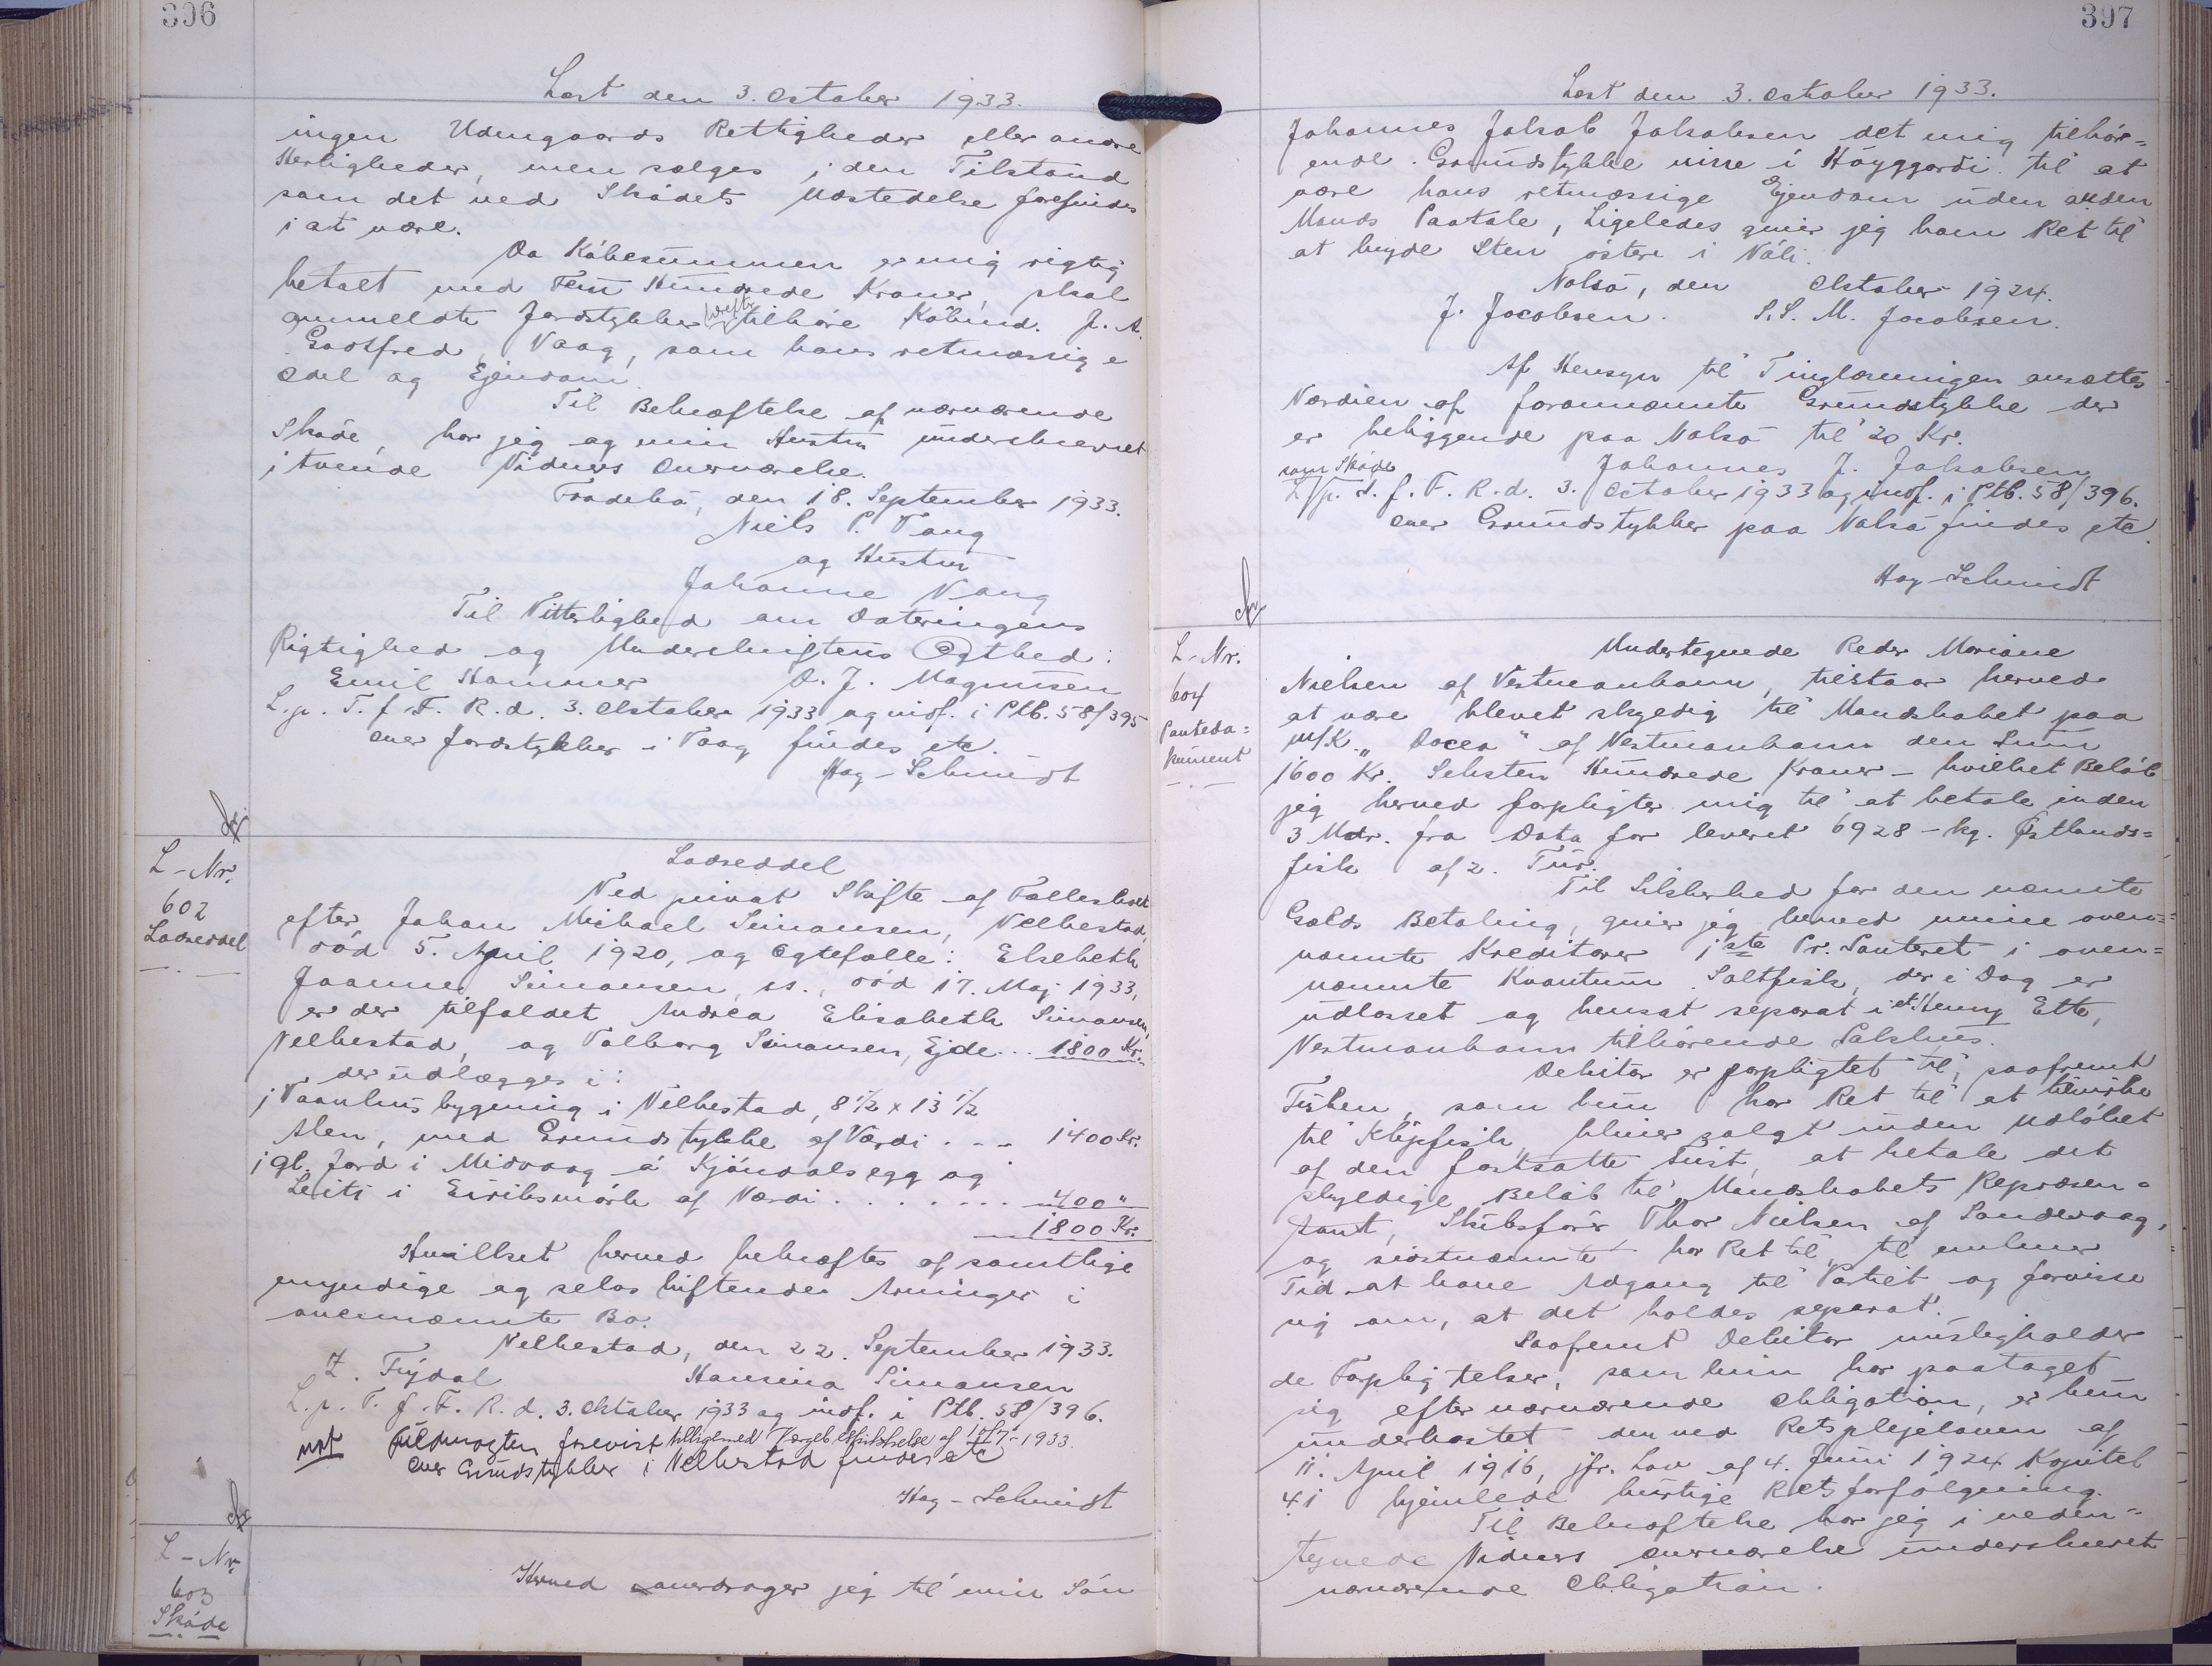 396
Læst den 3. October 1933.
ingen Udengaards Rettigheder eller andre
Herligheder, men sælges i den Tilstand
som det ved Skødets Udstedelse forefindes
i at være.
Da Købesummen er mig rigtig
betalt med Fem Hundrede Kroner, skal
anmeldte Jordstykker herefter tilhøre Købmd. J. A.
Godtfred, Vaag, som hans retmæssige
Odel og Ejendom.
Til Bekræftelse af nærværende
Skøde, har jeg og min Hustru underskrevet
i tvende Vidners Overværelse.
Frodebø, den 18. September 1933.
Niels P. Vang
og Hustru
Johanne Vang
Til Vitterlighed om Dateringens
Rigtighed og Underskriftens Ægthed:
Emil Hammer O. J. Magnusen
L. p. T. f. F. R. d. 3. Oktober 1933 og indf. i Ptb. 58/395
over Jordstykker i Vaag findes etc.
Hay-Schmidt
L-Nr.
602
Lodseddel
Lodseddel
Ved privat Skifte af Fællesboet
efter Johan Michael Simonsen, Velbestad,
død 5. April 1920, og Ægtefælle: Elsebeth
Joanne Simonsen, ss., død 17. Maj 1933,
er der tilfaldet Andrea Elisabeth Simonsen,
Velbestad, og Valborg Simonsen, Ejde... 1800 Kr.
der udlægges i:
1 Vaanhusbygning i Velbestad, 8 1/2 x 13 1/2
Alen, med Grundstykke af Værdi . . . 1400 Kr.
1 gl. Jord i Midvaag á Kjóndalsegg og
Leiti i Eiriksmørk af Værdi . . . . . . . 400 "
1800 Kr.
Hvilket herved bekræftes af samtlige
myndige og selvskiftende Arvinger i
ovennævnte Bo.
Velbestad, den 22. September 1933.
Z. Frydal Hansina Simonsen
L. p. T. f. F. R. d. 3. Oktober 1933 og indf. i Ptb. 58/396.
not Fuldmagten forevist tilligemed Værgebeskikkelse af 10/7-1933.
over Grundstykker i Velbestad findes etc
Hay-Schmidt
L-Nr.
603
Skøde
Herved overdrager jeg til min Søn
397
Læst den 3. October 1933.
Johannes Jakob Jakobsen det mig tilhør=
ende Grundstykke uirre i Høyggjardi til at
være hans retmæssige Ejendom uden anden
Mands Paatale, Ligeledes giver jeg ham Ret til
at bryde Sten østere i
Nolsø, den Oktober 1924.
J. Jacobsen. S. S. M. Jacobsen.
Af Hensyn til Tinglæsningen ansættes
Værdien af forannævnte Grundstykke der
er beliggende paa Nolsø til 20 Kr.
Johannes J. Jakobsen
som Skøde
L. p. T. f. F. R. d. 3. October 1933 og indf. i Ptb. 58/396.
over Grundstykker paa Nolsø findes etc.
Hay-Schmidt
L-Nr.
604
Pantedo=
kument
Undertegnede Reder Mariane
Nielsen af Vestmanhavn, tilstaar herved
at være blevet skyldig til Mandskabet paa
M/K. „Docea" af Vestmanhavn den Sum
1600 Kr. Seksten Hundrede Kroner - hvilket Beløb
jeg herved forpligter mig til at betale inden
3 Mdr. fra Dato for leveret 6928 - kg. Østlands=
fisk af 2. Tur.
Til Sikkerhed for den nævnte
Gælds Betaling, giver jeg herved mine oven=
nævnte Kreditorer 1ste Pr. Panteret i oven=
nævnte Kvantum Saltfisk, der i Dag er
udlosset og hensat separat i et Henry Ette,
Vestmanhavn tilhørende Pakhus.
Debitor er forpligtet til, saafremt
Fisken, som hun har Ret til at tilvirke
til Klipfisk, bliver solgt inden Udløbet
af den fastsatte Frist, at betale det
skyldige Beløb til Mandskabets Repræsen=
tant, Skibsfører Thor Nielsen af Sandevaag,
og sidstnævnte har Ret til, til enhver
Tid at have Adgang til Partiet og forvisse
sig om, at det holdes separat.
Saafremt Debitor misligholder
de Forpligtelser, som hun har paataget
sig efter nærværende Obligation, er hun
underkastet den ved Retsplejeloven af
11. April 1916, jfr. Lov af 4. Juni 1924 Kapitel
41 hjemlede hurtige Retsforfølgning.
Til Bekræftelse har jeg i neden=
tegnede Vidners Overværelse underskrevet
nærværende Obligation.